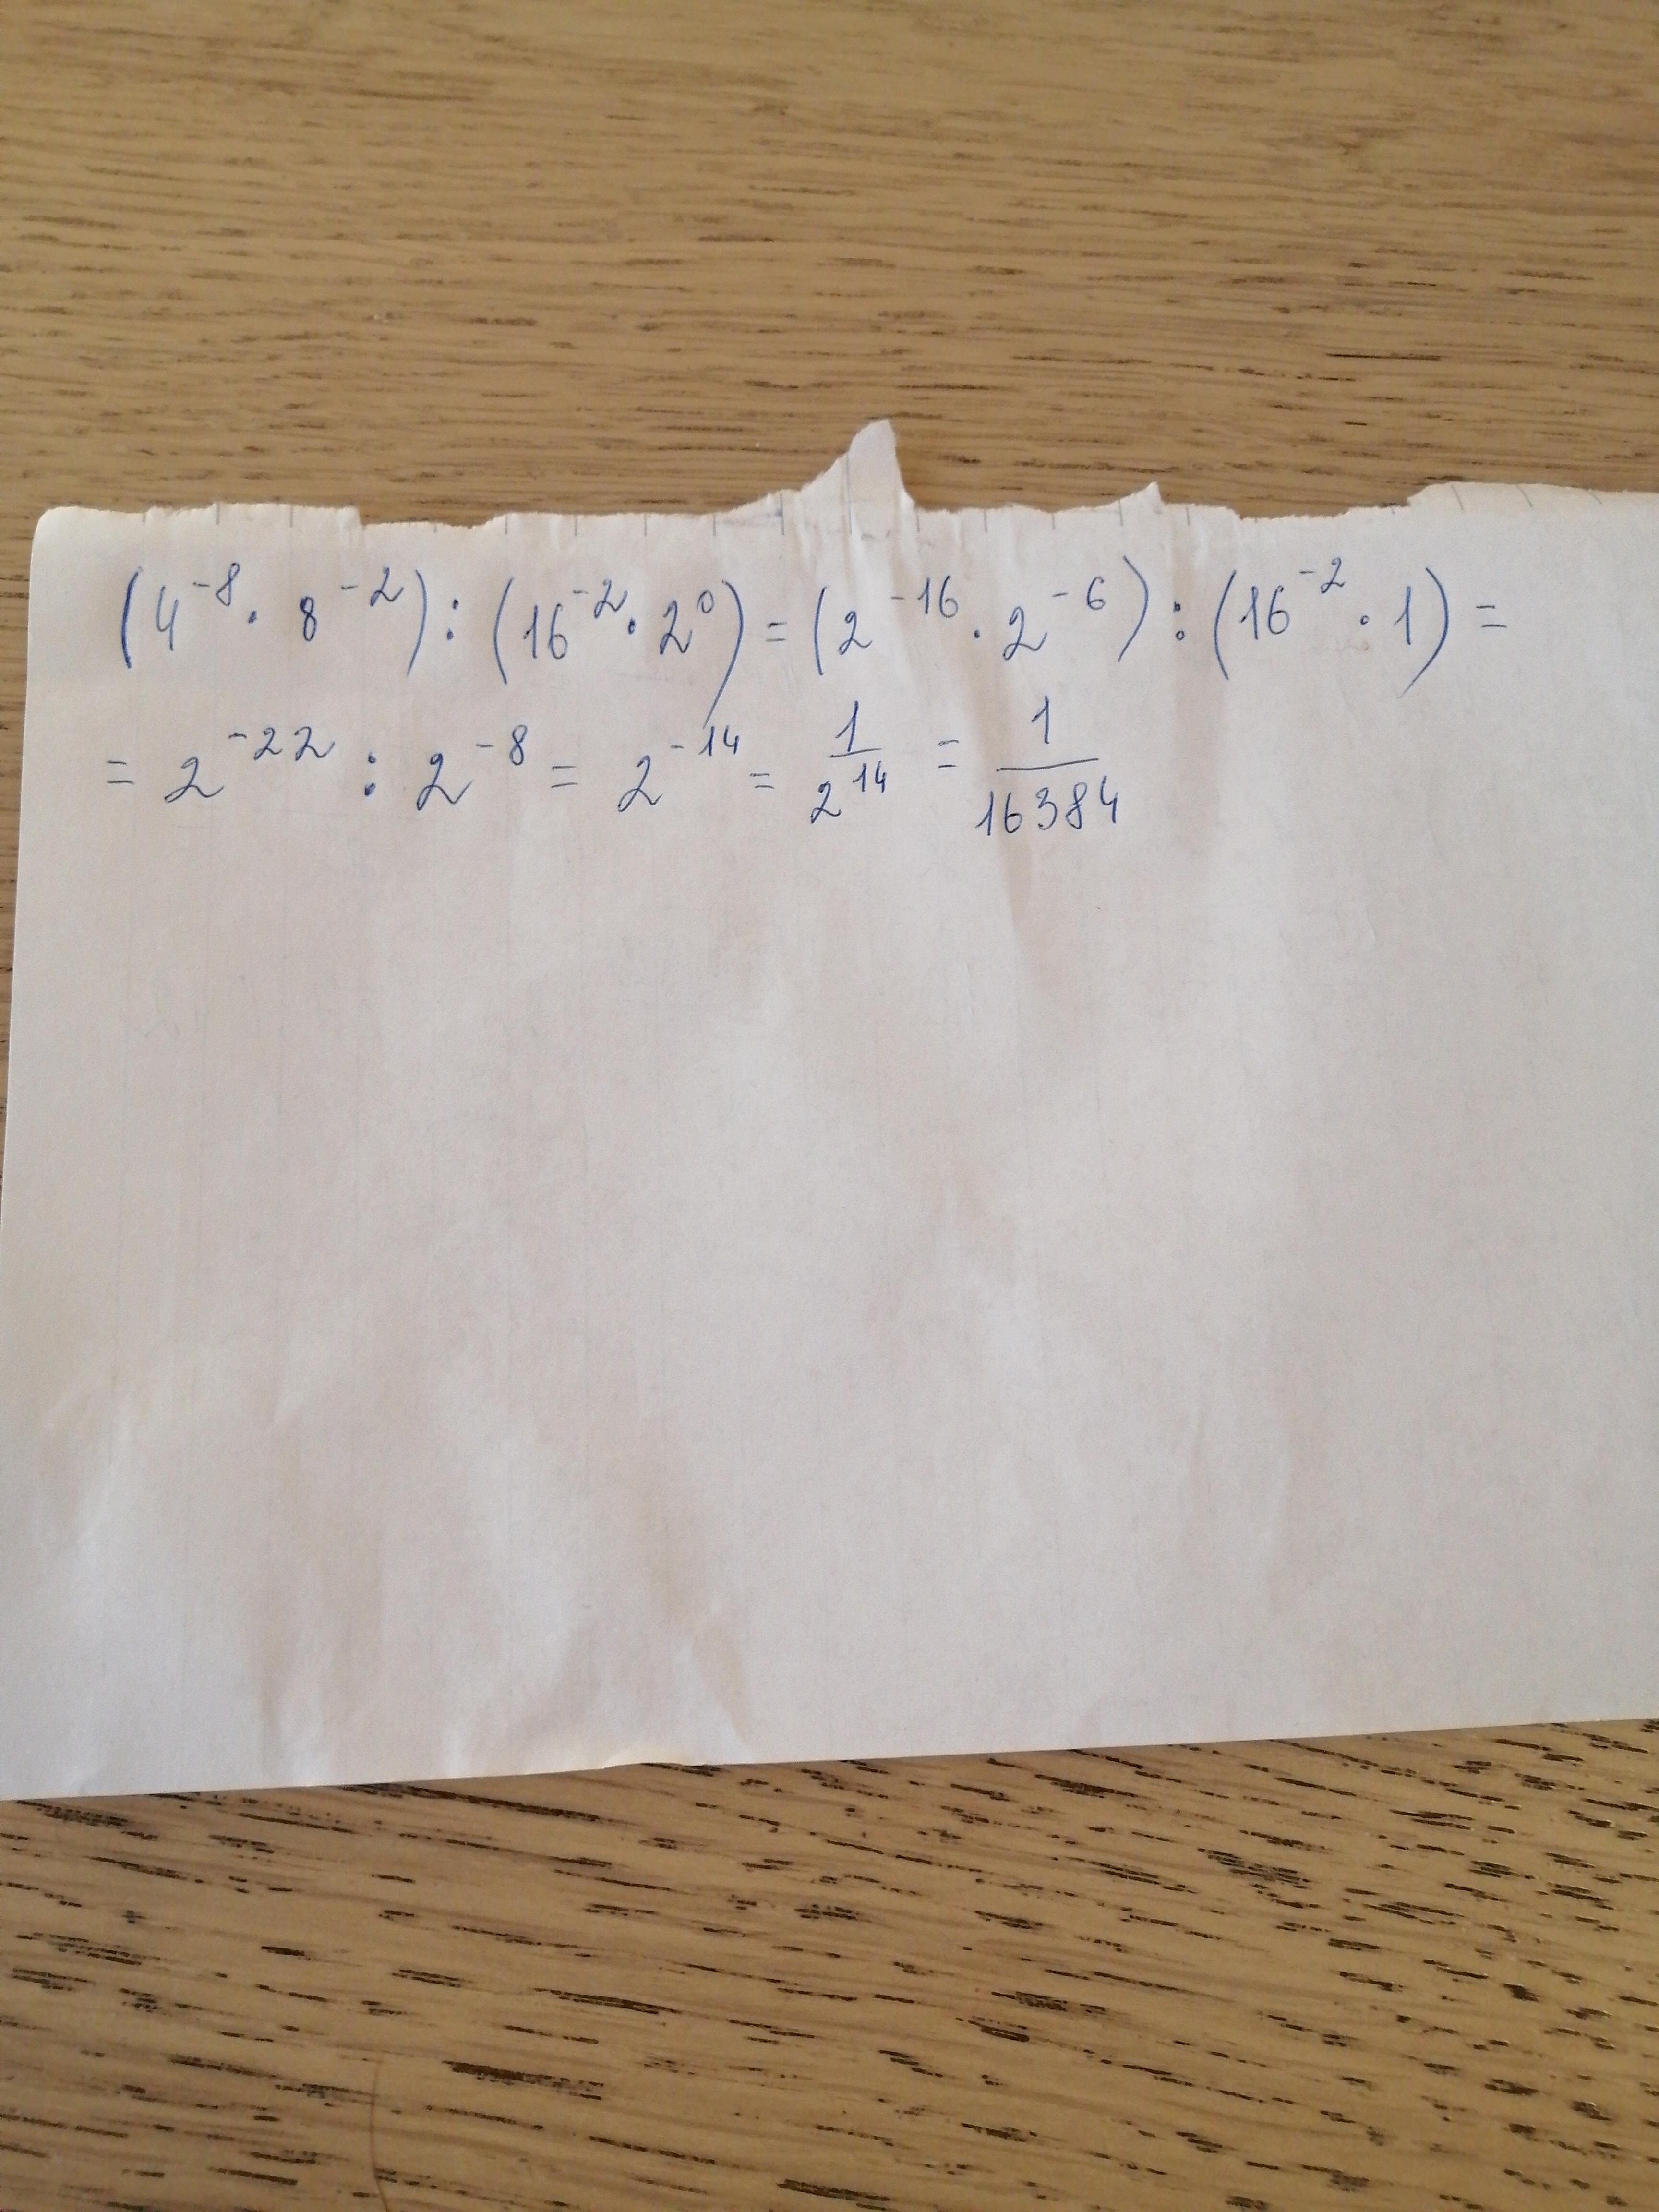 (4⁻⁸ · 8⁻²) : (16⁻² · 2⁰) = (2⁻¹⁶ · 2⁻⁶) : (16⁻² · 1) =
= 2⁻²² : 2⁻⁸ = 2⁻¹⁴ = 1/2¹⁴ = 1/16384